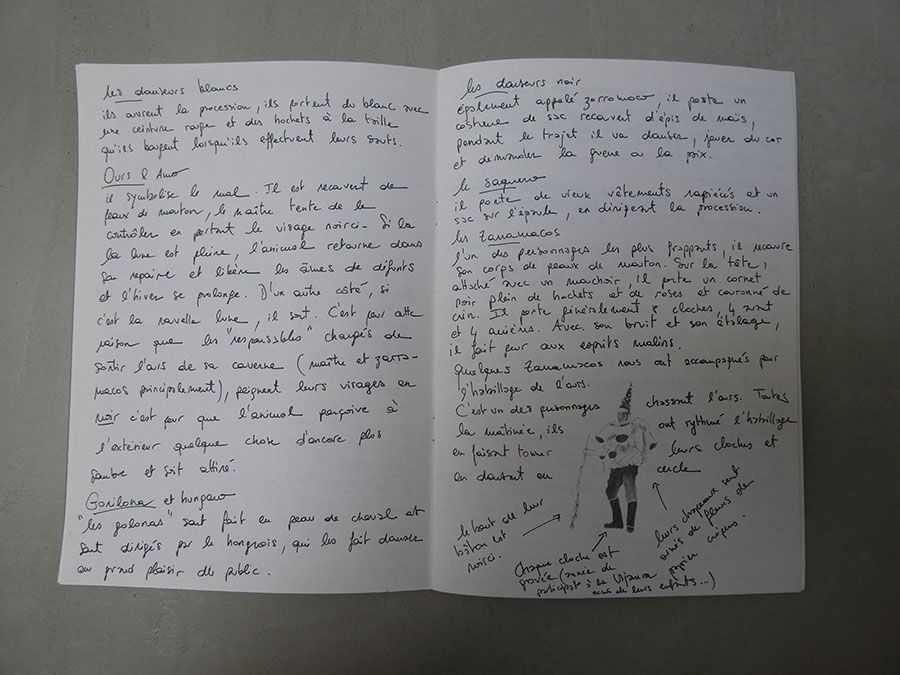 les danseurs blancs
ils ouvrent la procession, ils portent du blanc avec
une ceinture rouge et des hochets à la taille
qu'ils bougent lorsqu'ils effectuent leurs sauts.
Ours & Amo
il symbolise le mal. Il est recouvert de
peaux de mouton, le maître tente de le
contrôler en portant le visage noirci. Si la
la lune est pleine, l'animal retourne dans
sa repaire et libère les âmes de défunts
et l'hiver se prolonge. D'un autre côté, si
c'est la nouvelle lune, il sort. C'est pour cette
raison que les "responsables" chargés de
sortir l'ours de sa caverne (maître et zarra-
macos principalement), peignent leurs visages en
noir c'est pour que l'animal perçoive à
l'extérieur quelque chose d'ancore plus
sombre et soit attiré.
Gorilona et hungaro
"les golonas" sont fait en peau de cheval et
sont dirigés par le hongrois, qui les fait danser
au grand plaisir du public.
les danseurs noir
également appelé zorromoco, il porte un
costume de sac recouvert d'épis de maïs,
pendant le trajet il va danser, jouer du cor
et demander la guerre ou la paix.
le saquero
il porte de vieux vêtements rapiécés et un
sac sur l'épaule, en dirigeant la procession.
les Zarramacos
l'un des personnages les plus frappants, il recouvre
son corps de peaux de mouton. Sur la tête,
attaché avec un mouchoir, il porte un cornet
noir plein de hochets et de roses et couronné de
crin. Il porte généralement 8 cloches, 4 avant
et 4 arrières. Avec son bruit et son étalage,
il fait peur aux esprits malins.
Quelques Zarramacos nous ont accompagnés pour
l'habillage de l'ours.
C'est un des personnages chassant l'ours. Toutes
la matinée, ils ont rythmé l'habillage
en faisant tonner leurs cloches et
en dansant en cercle
le bout de leur
bâton est
noirci.
Chaque cloche est
gravée (année de
participat à la Vijanera
nom de leurs enfants...)
leurs chapeaux sont
ornés de fleurs de
papier crépons.